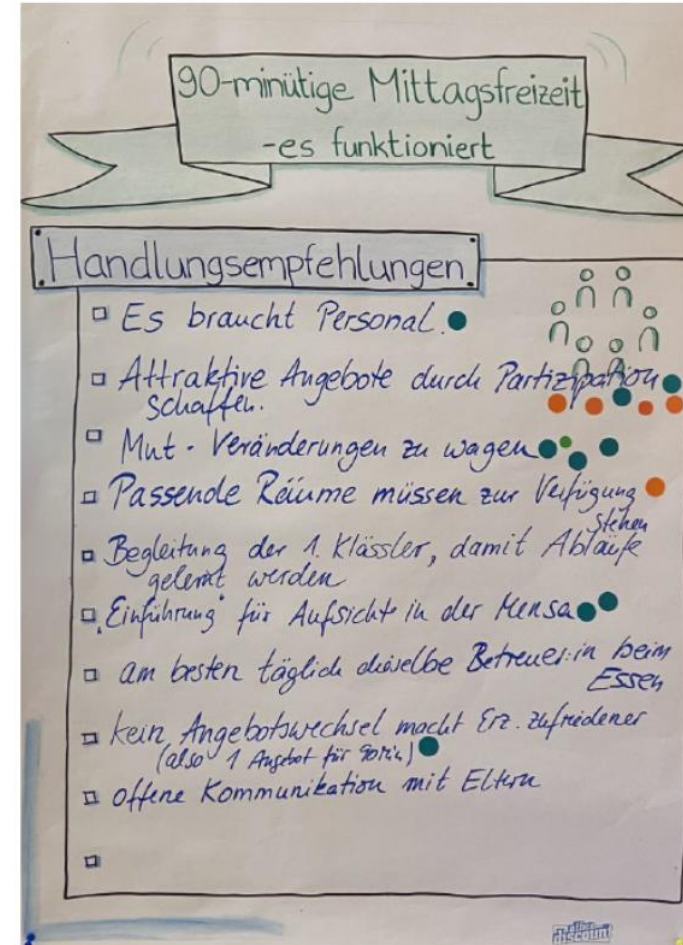 90-minütige Mittagsfreizeit
-es funktioniert
Handlungsempfehlungen
Es braucht Personal.
Attraktive Angebote durch Partizipation
schaffen.
Mut - Veränderungen zu wagen
Passende Räume müssen zur Verfügung
stehen
Begleitung der 1. Klässler, damit Abläufe
gelernt werden
"Einführung" für Aufsicht in der Mensa
am besten täglich dieselbe Betreuer:in beim
Essen
kein Angebotswechsel macht Erz. zufriedener
(also 1 Angebot für 90 Min)
offene Kommunikation mit Eltern
discount